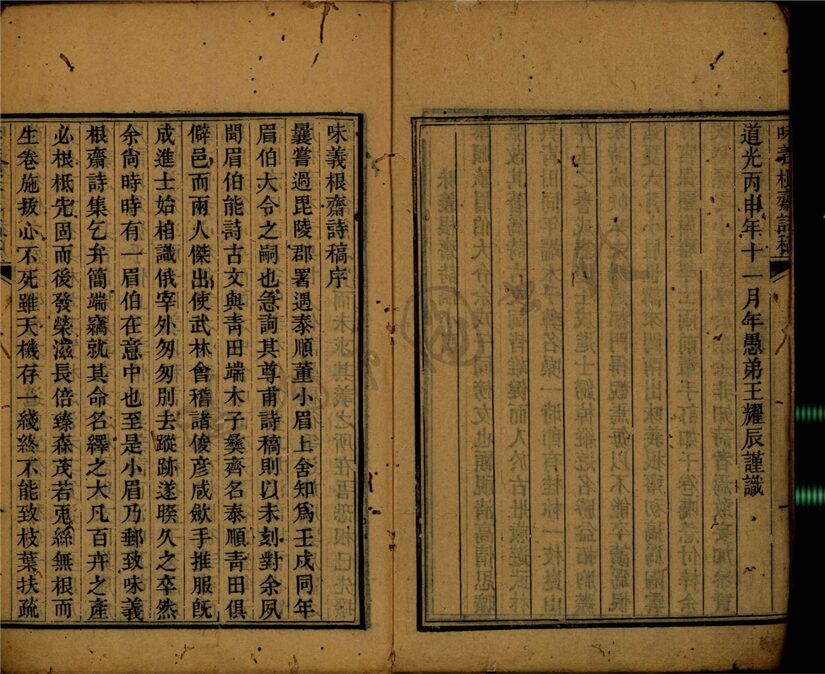 道光丙申年十一月年愚弟王耀辰謹識
味義根齋詩稿序
曩嘗過毘陵郡署遇泰順董小眉上舍知爲壬戌同年
眉伯大令之嗣也急詢其尊甫詩稿則以未刻對余夙
聞眉伯能詩古文與靑田端木子彝齊名泰順靑田俱
僻邑而兩人傑出使武林會稽諸俊彥咸斂手推服旣
成進士始相識俄宰外匆匆別去蹤跡遂暌久之卒然
余尙時時有一眉伯在意中也至是小眉乃郵致味義
根齋詩集乞弁簡端竊就其命名繹之大凡百卉之產
必根柢先固而後發榮滋長倍臻森茂若兎絲無根而
生卷施拔心不死雖天機存一綫終不能致枝葉扶疏